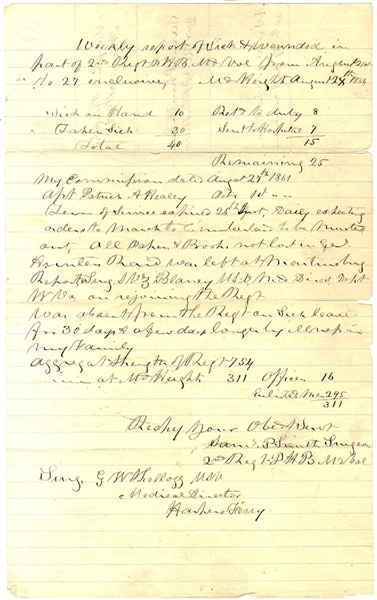 Weekly report of Sick & Wounded in
part of 2nd Regt P.H.B. Md Vol from August 21st
to 27 inclusive, Md Heights August 27th 1864
Sick on Hand 10 Retd to duty 8
Taken Sick 30 Sent to Hospital 7
Total 40 15
Remaining 25
My Commission dated August 27th 1861
Apt Patrick A Healey Octr 1st
Term of Service expired 25th Inst, Daily expecting
orders to March to Cumberland to be Mustered
out, All Papers & Books not lost in Genl
Hunters Raid was left at Martinsburg
Report Surg Blaney USV Med Direc Dept
W Va on rejoining the Regt
Was absent from the Regt on Sick leave
for 30 days & a few days longer by illness in
my Family
Aggregate Strength of Regt 754
men at Md Heights 311 Officers 16
Enlisted Men 295
311
Respy Your Obdt Servt
Saml P Smith Surgeon
2nd Regt P.H.B. Md Vol
Surg. G W Kellogg USV
Medical Director
Harpers Ferry